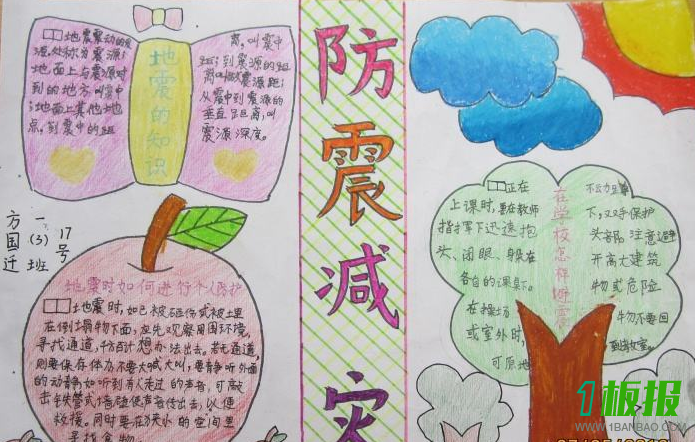 地震的知识
地震震动的发
源处称为震源;
地面上与震源对
到的地方叫震中
;地面上其他地
点,到震中的距
离,叫震中
距;到震源的距
离叫做震源距;
从震中到震源的
垂直距离,叫
震源深度。
防震减灾
方国迁
一(3)班
17号
地震时如何进行个人防护
地震时,如已被砸伤或被土里
在倒塌物下面,应先观察周围环境,
寻找通道,千方百计想办法出去。若无通道,
则要保存体力不要大喊大叫,要静听外面
的动静,如听到有人走过的声音,可敲
击铁管或墙壁使声音传出去,以便
救援。同时要在狭小的空间里
寻找食物
在学校怎样避震
正在
上课时,要在教师
指挥下迅速抱
头、闭眼、躲在
各自的课桌下。
在操场
或室外时,
可原地
不动蹲
下,双手保护
头部,注意避
开高大建筑
物或危险
物不要回
到教室。
1板报
WWW.1BANBAO.COM